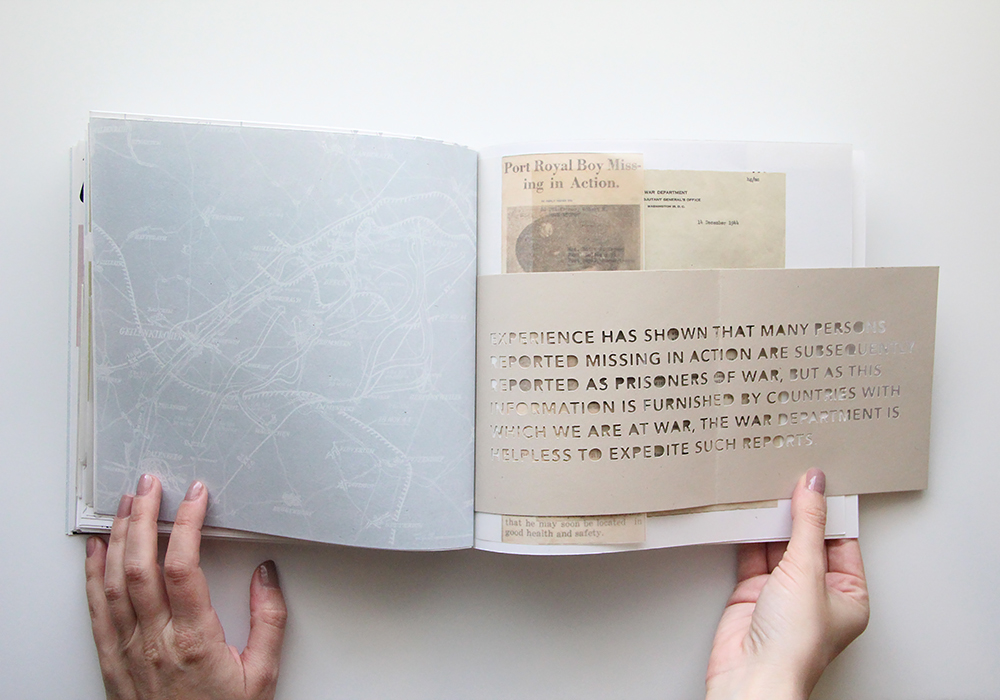 Port Royal Boy Miss-
ing in Action.
WAR DEPARTMENT
WASHINGTON 25, D.C.
14 December 1944
EXPERIENCE HAS SHOWN THAT MANY PERSONS
REPORTED MISSING IN ACTION ARE SUBSEQUENTLY
REPORTED AS PRISONERS OF WAR, BUT AS THIS
INFORMATION IS FURNISHED BY COUNTRIES WITH
WHICH WE ARE AT WAR, THE WAR DEPARTMENT IS
HELPLESS TO EXPEDITE SUCH REPORTS
that he may soon be located in
good health and safety.